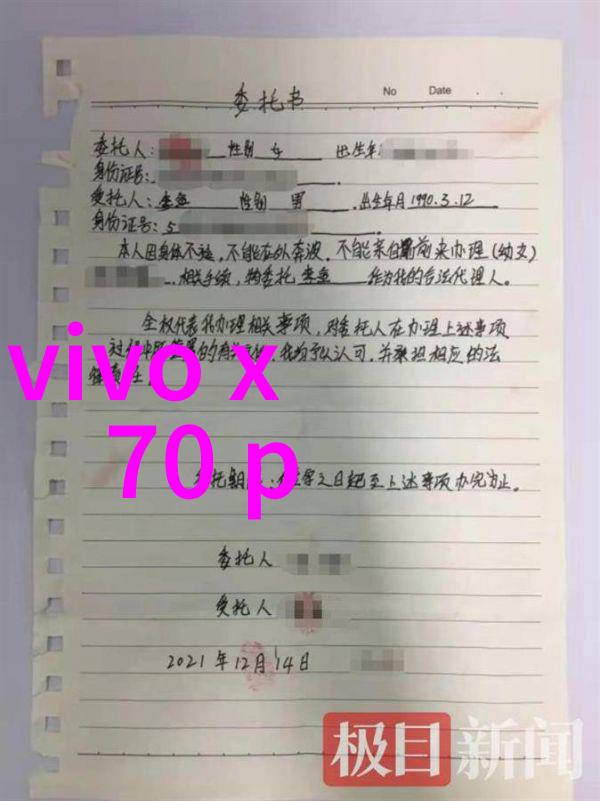 No Date . .
委托书
委托人: 性别 女 出生年
身份证号:
受托人: 李鱼 性别 男 出生年月 1990.3.12
身份证号 5
本人因身体不适,不能在外奔波,不能亲自前来办理(幼女)
相关手续,特委托 李鱼 作为我的合法代理人。
全权代表我办理相关事项,对委托人在办理上述事项
过程中所签署的有关文件,我均予以认可,并承担相应的法
律责任。
vivo x
70 p
委托期限:自签字之日起至上述事项办完为止。
委托人
受托人
2021年12月14日
极目新闻